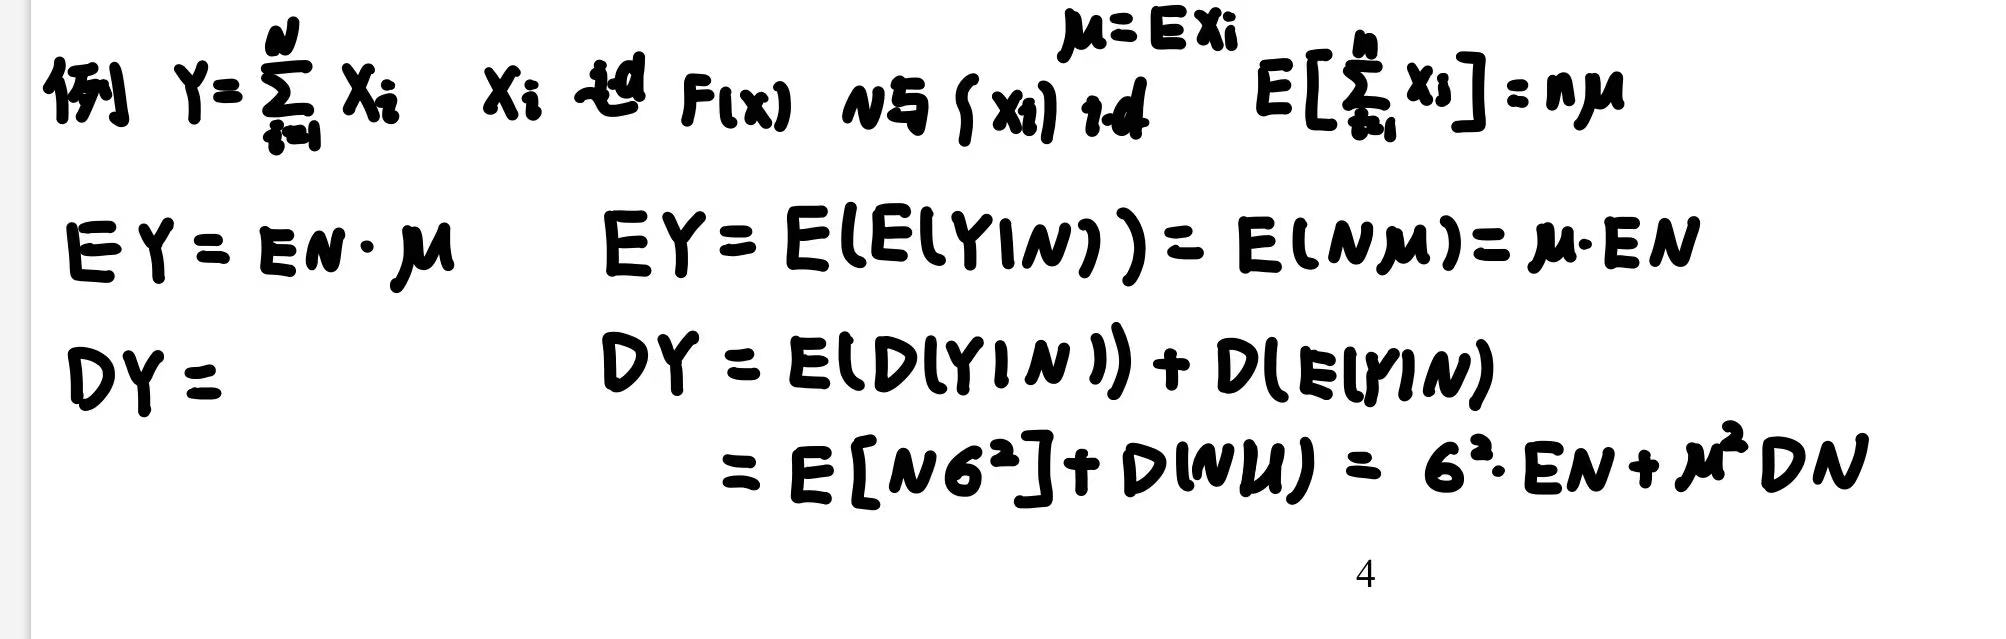 μ = E Xi
例 Y = \sum_{i=1}^{N} Xi Xi iid F(x) N与{Xi} id E[\sum_{i=1}^{n} Xi] = nμ
EY = EN · μ EY = E(E(Y|N)) = E(Nμ) = μ · EN
DY = DY = E(D(Y|N)) + D(E(Y|N)
= E[Nσ²] + D(Nμ) = σ² · EN + μ² DN
4